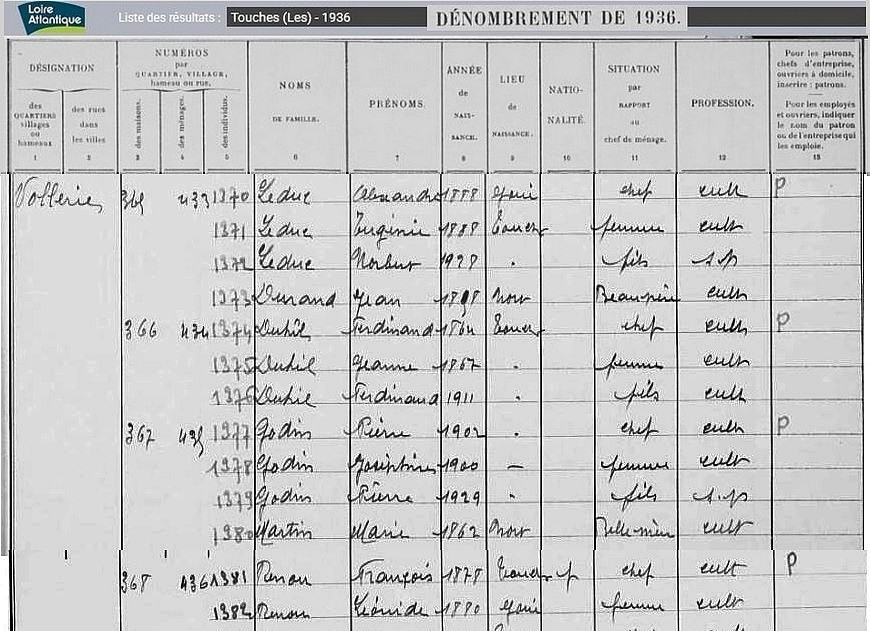 Loire Atlantique Liste des résultats : Touches (Les) - 1936 DÉNOMBREMENT DE 1936.
DÉSIGNATION NUMÉROS par QUARTIER, VILLAGE, hameau ou rue. NOMS DE FAMILLE. PRÉNOMS. ANNÉE de NAISSANCE. LIEU de NAISSANCE. NATIONALITÉ. SITUATION par RAPPORT au chef de ménage. PROFESSION. Pour les patrons, chefs d'entreprise, ouvriers à domicile, inscrire : patrons.
des QUARTIERS villages ou hameaux des rues dans les villes des maisons. des ménages. des individus. Pour les employés et ouvriers, indiquer le nom du patron ou de l'entreprise qui les emploie.
1 2 3 4 5 6 7 8 9 10 11 12 13
433 1370 Leduc Alexandre 1888 chef cult P
1371 Leduc Eugénie 1888 Touches femme cult
1372 Leduc Norbert 1928 " fils s.p
1373 Durand Jean Nort Beau-père cult
366 434 1374 Duhil Ferdinand 1864 Touches chef cult P
1375 Duhil Jeanne 1867 " femme cult
1376 Duhil Ferdinand 1911 " fils cult
367 435 1377 Godin Pierre 1902 " chef cult P
1378 Godin Joséphine 1900 — femme cult
1379 Godin Pierre 1929 " fils s.p
1380 Martin Marie 1862 Nort Belle-mère cult
368 436 1381 Renou François 1878 Touches f chef cult P
1382 Renou Léonide 1880 femme cult